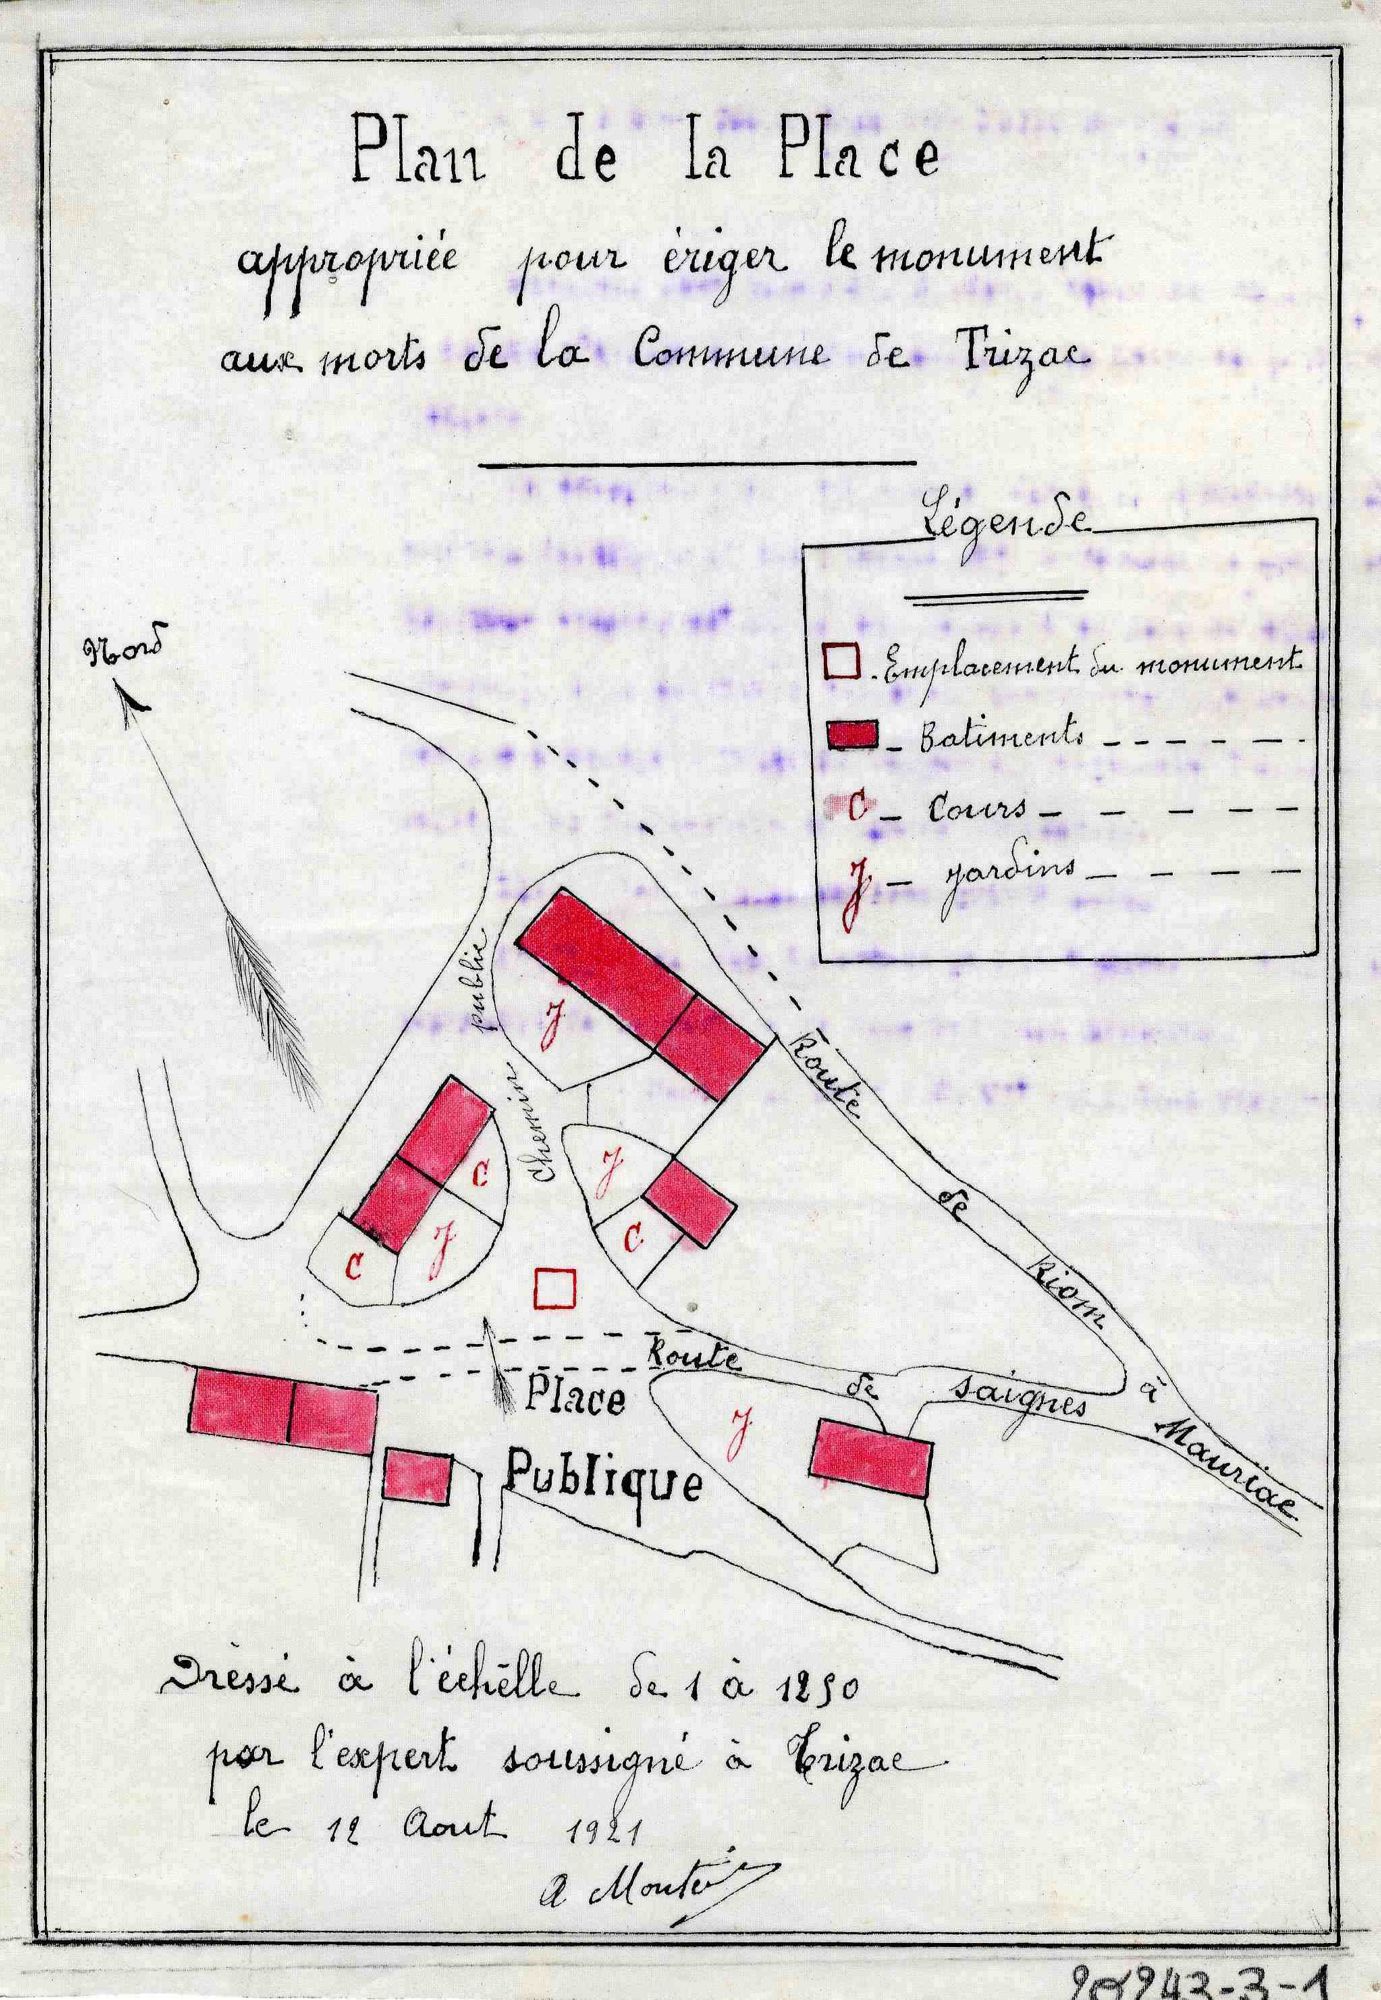 Plan de la Place
appropriée pour ériger le monument
aux morts de la Commune de Trizac
Légende
Emplacement du monument
Batiments
C - Cours
J - Jardins
Nord
Chemin public
J
C
J
C
J
C
Route de Riom à Mauriac
Route de Saignes
J
Place
Publique
Dréssé à l'échèlle de 1 à 1250
par l'expert soussigné à Trizac
le 12 Aout 1921